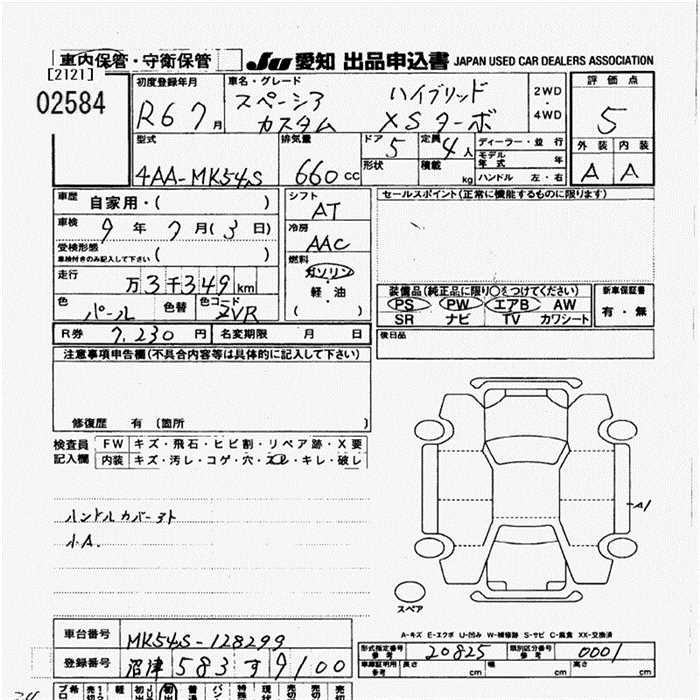 車内保管・守衛保管 JU 愛知 出品申込書 JAPAN USED CAR DEALERS ASSOCIATION
[2121]
02584
初度登録年月 R6 7月
車名・グレード スペーシア カスタム ハイブリッド XSターボ
2WD・4WD
評価点 5
外装 内装
A A
型式 4AA-MK54S
排気量 660cc
ドア 5 形状
定員 4人 積載 kg
ディーラー・並行
モデル年式 年
ハンドル 左・右
車歴 自家用・( )
車検 9年7月(3日)
受検形態 車検付きのみ記入して下さい ( )
走行 万3千349km
色 パール 色替 色コード ZVR
シフト AT
冷房 AAC
燃料 ガソリン・軽油・( )
セールスポイント(正常に機能するものに限ります)
装備品(純正品に限り○をつけてください)
PS PW エアB AW
SR ナビ TV カワシート
新車保証書 有・無
後日品
R券 7,230円 名変期限 月 日
注意事項申告欄(不具合内容等は具体的に記入して下さい)
修復歴 有(箇所 )
検査員記入欄
FW キズ・飛石・ヒビ割・リペア跡・X要
内装 キズ・汚レ・コゲ・穴・スレ・キレ・破レ
ハンドルカバー
小A.
A1
スペア
A-キズ E-エクボ U-凹み W-補修跡 S-サビ C-腐食 XX-交換済
車台番号 MK54S-128299
登録番号 沼津 583 す 9100
型式指定番号 参考 20825 類別区分番号 参考 0001
車庫証明用 参考 長さ cm 幅 cm 高さ cm